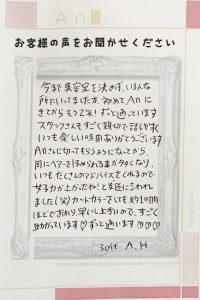 An
お客様の声をお聞かせください
今まで美容室を決めず、いろんな
所にいってました。初めてAnに
きてからもう2年!ずっと通っています
スタッフさんもすごく親切で話しやすく
いつも楽しい時間ありがとうございます
Anさんに切ってもらうようになってから
周にヘアーをほめられる事が多くなり、
いつもたくさんのアドバイスをくれるので
女子力が上がったね!と友達に言われ
ました(笑)カットカラーをしても約1時間
ほどでおわり、早いし上手いので、すごく
助かっています♡ずっと通います♡♡♡
30代 A.H